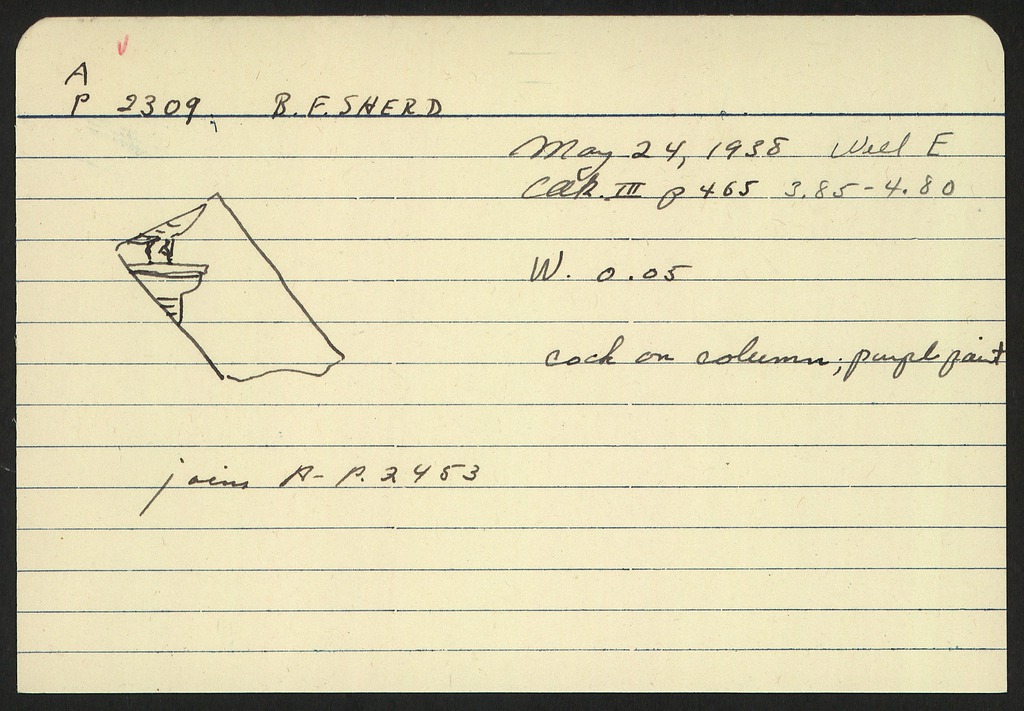 A
P 2309, B. F. SHERD
May 24, 1938 Well E
III p 465 3.85-4.80
W. 0.05
cock on column; purple paint
joins A-P. 2453